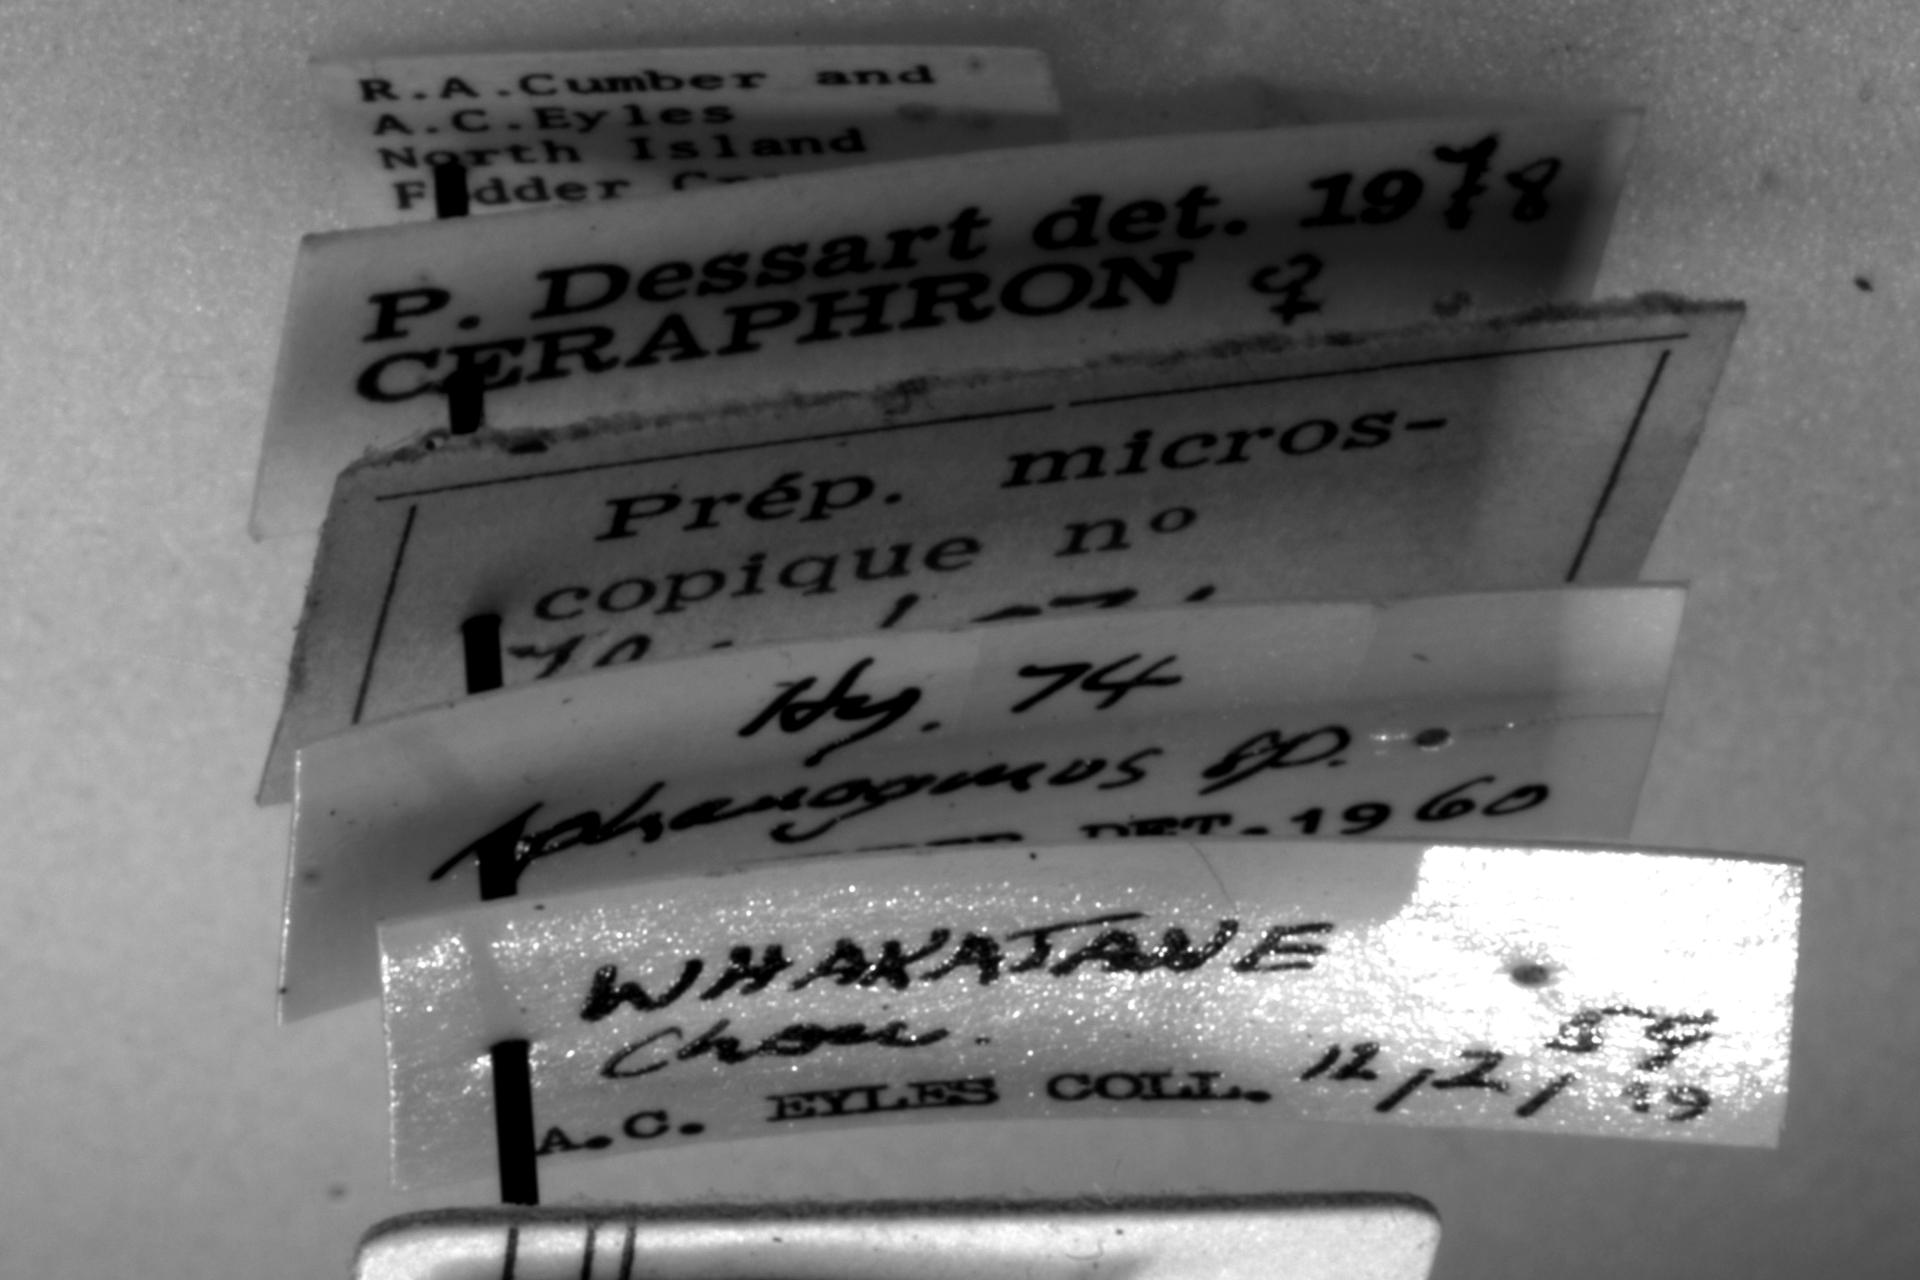 R.A.Cumber and
A.C.Eyles
North Island
Fodder
P. Dessart det. 1978
CERAPHRON ♀
Prép. micros-
copique nº
Hy. 74
Aphanogmus sp.
DET. 1960
WHAKATANE
Chou.
59
A.C. EYLES COLL. 12/2/59